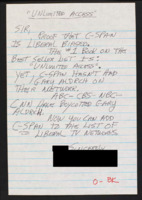 "UNLIMITED ACCESS"
SIR,
PROOF THAT C-SPAN
IS LIBERAL BIASED.
THE #1 BOOK ON THE
BEST SELLER LIST IS:
"UNLIMITED ACCESS".
YET, C-SPAN HASN'T HAD
GARY ALDRICH ON
THEIR NETWORK.
ABC-CBS-NBC-
CNN HAVE BOYCOTTED GARY
ALDRICH.
NOW YOU CAN ADD
C-SPAN TO THE LIST OF
LIBERAL TV NETWORKS.
SINCERELY